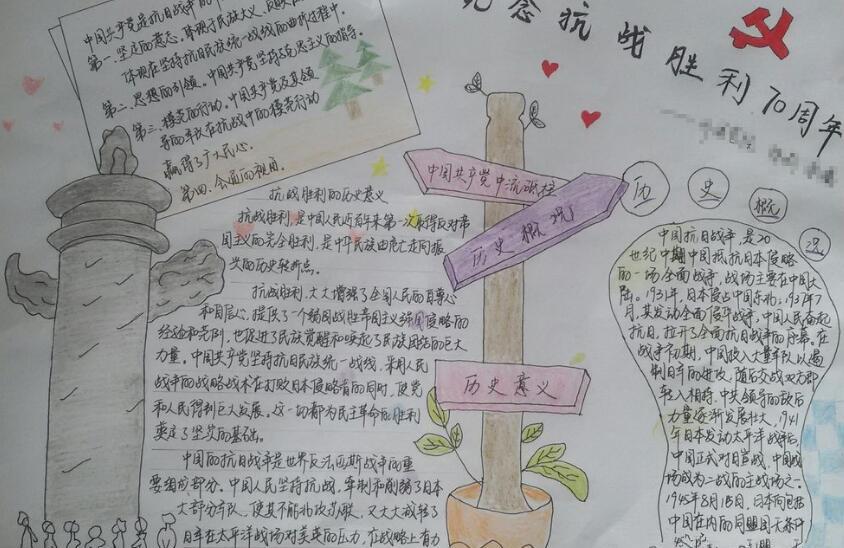 纪念抗战胜利70周年
中国共产党是抗日战争的中
第一、坚定的意志。体现了民族大义
体现在坚持抗日民族统一战线的曲折过程中。
第二、思想的引领。中国共产党坚持马克思主义的指导。
第三、模范的行动。中国共产党及其领
导的军队在抗战中的模范行动
赢得了广大民心。
第四、全面的视角。
抗战胜利的历史意义
抗战胜利，是中国人民近百年来第一次取得反对帝
国主义的完全胜利，是中华民族由衰亡走向振
兴的历史转折点。
抗战胜利，大大增强了全国人民的自尊心
和自信心，提供了一个弱国战胜帝国主义强国侵略的
经验和范例，也促进了民族觉醒和唤起了民族团结的巨大
力量。中国共产党坚持抗日民族统一战线，采用人民
战争的战略战术在打败日本侵略者的同时，使党
和人民得到巨大发展。这一切都为民主革命的胜利
奠定了坚实的基础。
中国的抗日战争是世界反法西斯战争的重
要组成部分。中国人民坚持抗战，牵制和削弱了日本
大部分军队，使其不能北攻苏联，又大大减轻了
日军在太平洋战场对美英的压力，在战略上有力
中国共产党中流砥柱
历史概况
历史意义
历史概况
中国抗日战争，是20
世纪中期中国抵抗日本侵略
的一场全面战争，战场主要在中国大
陆。1931年，日本侵占中国东北；1937年7
月，其发动全面侵华战争，中国人民奋起
抗日，拉开了全面抗日战争的序幕。在
战争初期，中国投入大量军队以遏
制日军的进攻，随后交战双方即
转入相持，中共领导的敌后
力量逐渐发展壮大，1941
年日本发动太平洋战争后，
中国正式对日宣战，中国战
场成为二战的主战场之一。
1945年8月15日，日本向包括
中国在内的同盟国无条件